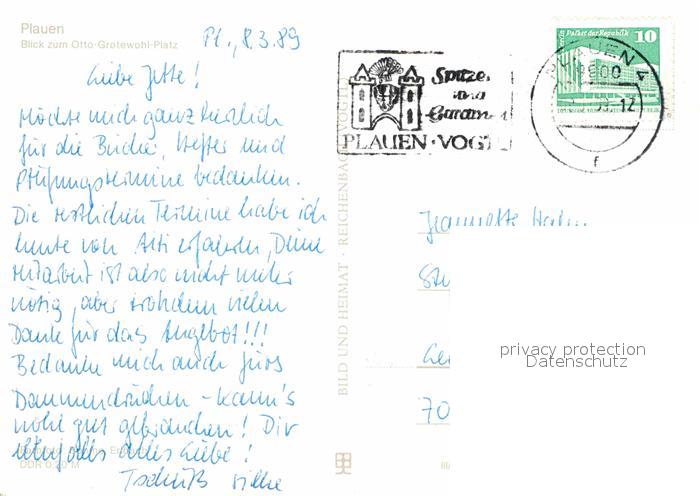 Plauen
Blick zum Otto-Grotewohl-Platz
Pl., 8.3.89
Liebe Jette!
Möchte mich ganz herzlich
für die Bücher, Hefter und
Prüfungstermine bedanken.
Die restlichen Termine habe ich
heute von erfahren, Deine
Mitarbeit ist also nicht mehr
nötig, aber trotzdem vielen
Dank für das Angebot!!!
Bedanke mich auch fürs
Daumendrücken - kann's
wohl gut gebrauchen! Dir
ebenfalls alles Liebe!
Tschüß
DDR 0,20 M
BILD UND HEIMAT · REICHENBACH (VOGTL
Spitzen
und
Gardinen
PLAUEN · VOGTL
PLAUEN 4
9900
12
f
Berlin Palast der Republik
10
Jeannette
70
privacy protection
Datenschutz